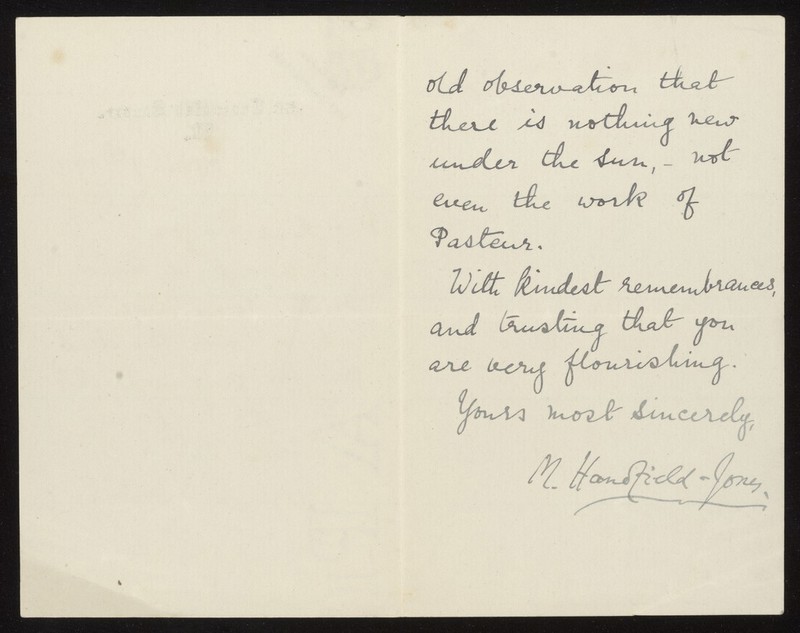 old observation that
there is nothing new
under the sun, - not
even the work of
Pasteur.
With kindest remembrances,
and trusting that you
are very flourishing.
Yours most sincerely,
M. Handfield-Jones.